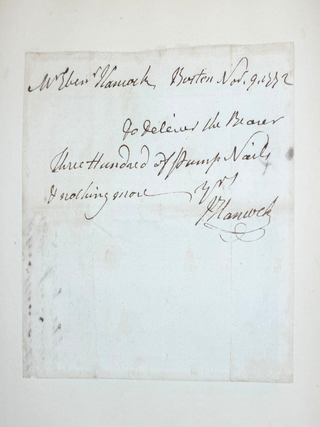 Mr Ebenr Hancock, Boston Nov. 9. 1772
to deliver the Bearer
three Hundred of pump Nails
& nothing more Yrs
J Hancock